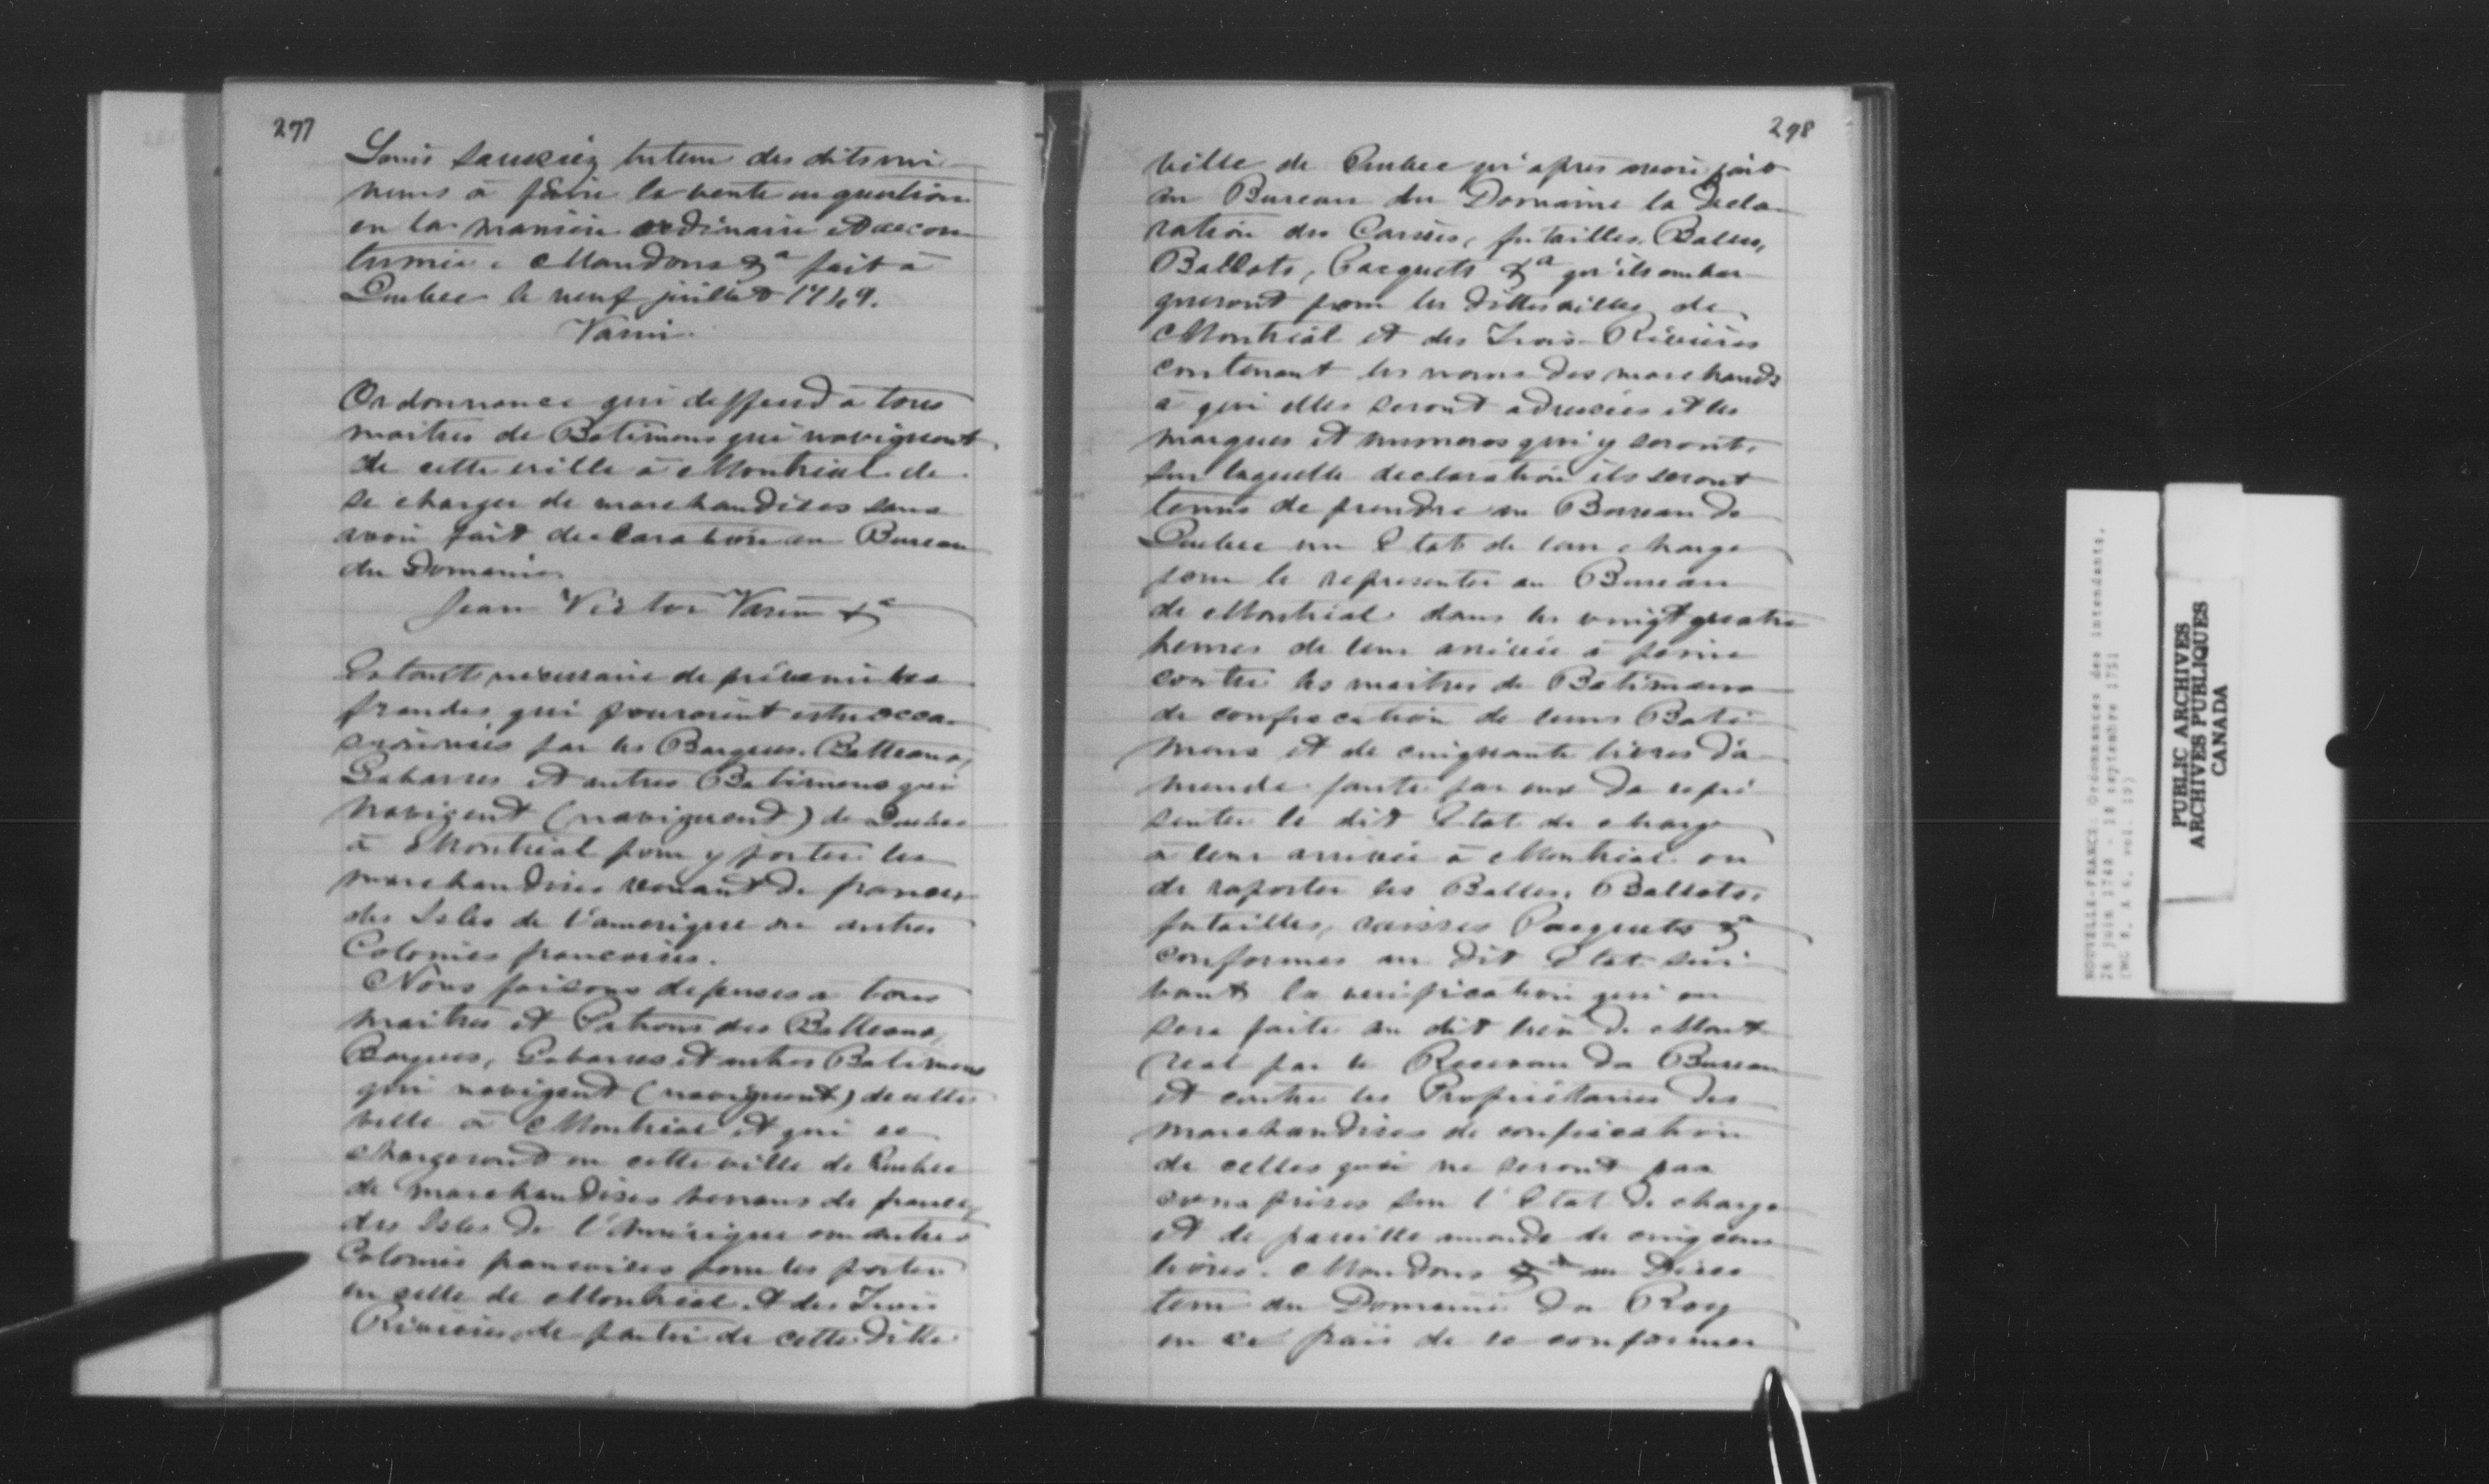 297
Louis tuteur des dits mi-
neurs à faire la vente en question
en la manière ordinaire et accou
tumée. Mandons &a fait à
Quebec le neuf juillet 1749.
Varin.
Ordonnance qui deffend à tous
maitres de Batimens qui naviguent
de cette ville à Montreal de
se charger de marchandises sans
avoir fait declaration au Bureau
du Domaine
Jean Victor Varin &a
Estant necessaire de prévenir les
fraudes qui pouroient estre occa-
sionnées par les Barques, Batteaux,
Gabarres et autres Batimens qui
navigent (naviguent) de Quebec
à Montreal pour y porter les
marchandises venant de france
des Isles de l'amerique ou autres
Colonies francoises.
Nous faisons defenses a tous
maitres et Patrons des Batteaux,
Barques, Gabarres et autres Batimens
qui navigent (naviguent) de cette
ville à Montréal et qui se
chargeront en cette ville de Quebec
de marchandises venans de france,
des Isles de l'Amérique ou autres
Colonies francoises pour les porter
en celle de Montréal et des Trois
Rivieres, de partir de cette ditte
298
ville de Quebec qu'apres avoir fait
au Bureau du Domaine la Decla-
ration des Caisses, futailles, Balles,
Ballots, Pacquets &a qu'ils embar-
queront pour les dittes villes de
Montréal et des Trois-Rivières
contenant les noms des marchands
à qui elles seront adressées et les
marques et numeros qui y seront,
sur laquelle declaration ils seront
tenus de prendre au Bureau de
Quebec un Etat de leur charge
pour le representer au Bureau
de Montréal dans les vingt quatre
heures de leur arrivée à peine
contre les maitres de Batimens
de confiscation de leurs Bati-
mens et de cinquante livres d'a-
mende faute par eux de repré-
senter le dit Etat de charge
à leur arrivée à Montréal ou
de raporter les Balles, Ballots,
futailles, caisses Pacquets &a
conformes au dit Etat sui-
vant la verification qui en
sera faite au dit lieu de Mont
real par le Receveur du Bureau
et contre les Propriétaires des
marchandises de confiscation
de celles qui ne seront pas
comprises sur l'Etat de charge
et de pareille amande de cinq cens
livres. Mandons &a au Direc
teur du Domaine du Roy
en ce païs de se conformer
NOUVELLE-FRANCE: Ordonnances des intendants,
26 juin 1748 - 18 septembre 1751
(MG 8, A 6, vol. 19)
PUBLIC ARCHIVES
ARCHIVES PUBLIQUES
CANADA